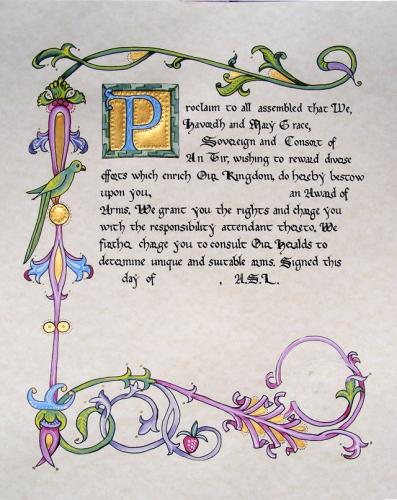 Proclaim to all assembled that We,
Havordh and Mary Grace,
Sovereign and Consort of
An Tir, wishing to reward diverse
efforts which enrich Our Kingdom, do hereby bestow
upon you, an Award of
Arms. We grant you the rights and charge you
with the responsibility attendant thereto. We
further charge you to consult Our Heralds to
determine unique and suitable arms. Signed this
day of , A.S.L.